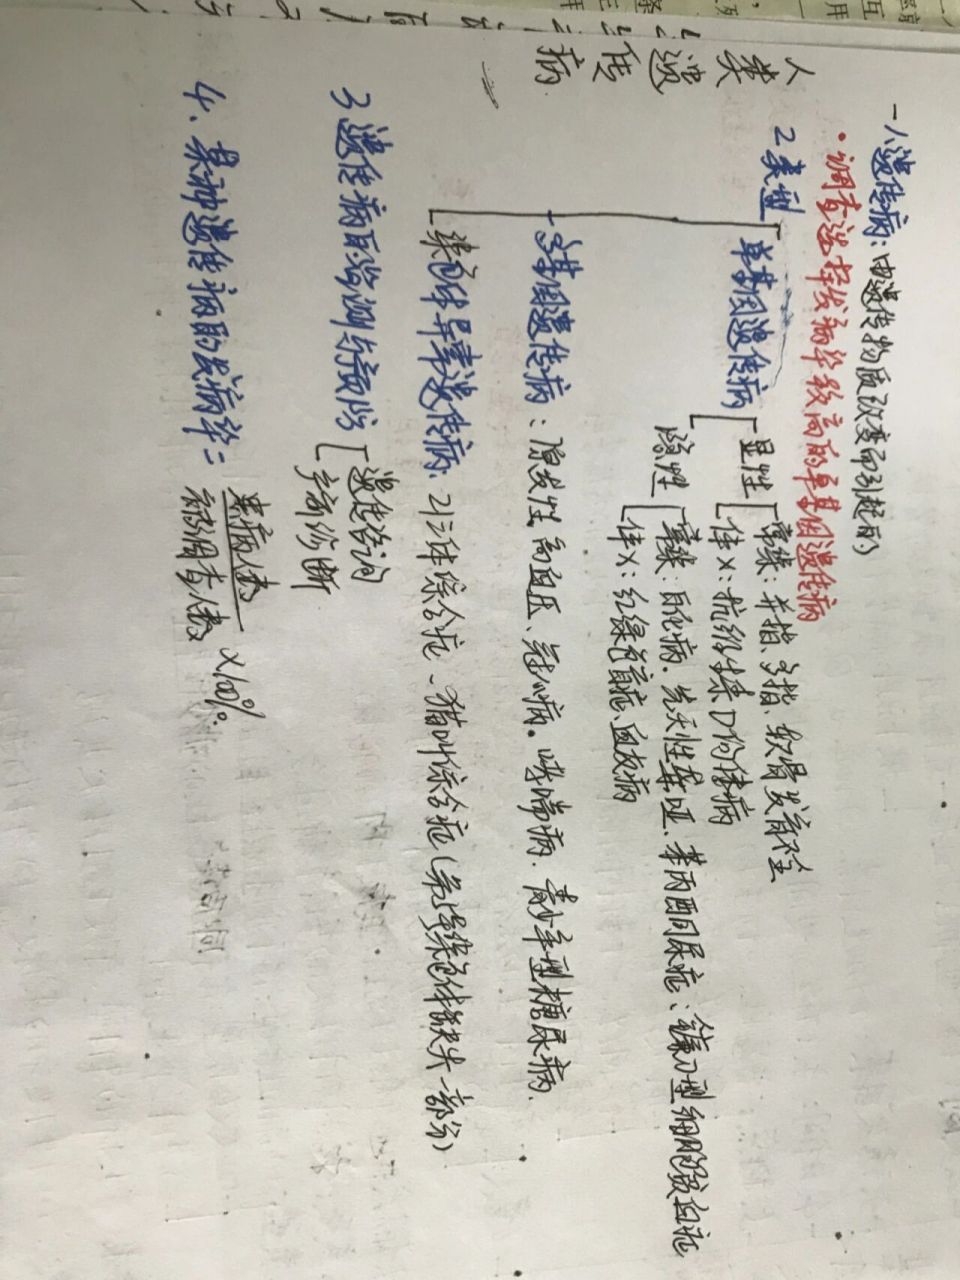 人类遗传病
一、1、遗传病：由遗传物质改变而引起的
·调查选择发病率较高的单基因遗传病
2类型
单基因遗传病
显性
常染：并指、多指、软骨发育不全
伴X：抗维生素D佝偻病
隐性
常染：白化病、先天性聋哑、苯丙酮尿症；镰刀型细胞贫血症
伴X：红绿色盲症、血友病
多基因遗传病：原发性高血压、冠心病。哮喘病、青少年型糖尿病.
染色体异常遗传病：21三体综合症、猫叫综合症（5号染色体缺失一部分）
3遗传病的监测与预防
遗传咨询
产前诊断
4、某种遗传病的发病率=
患病人数
被调查人数
×100%